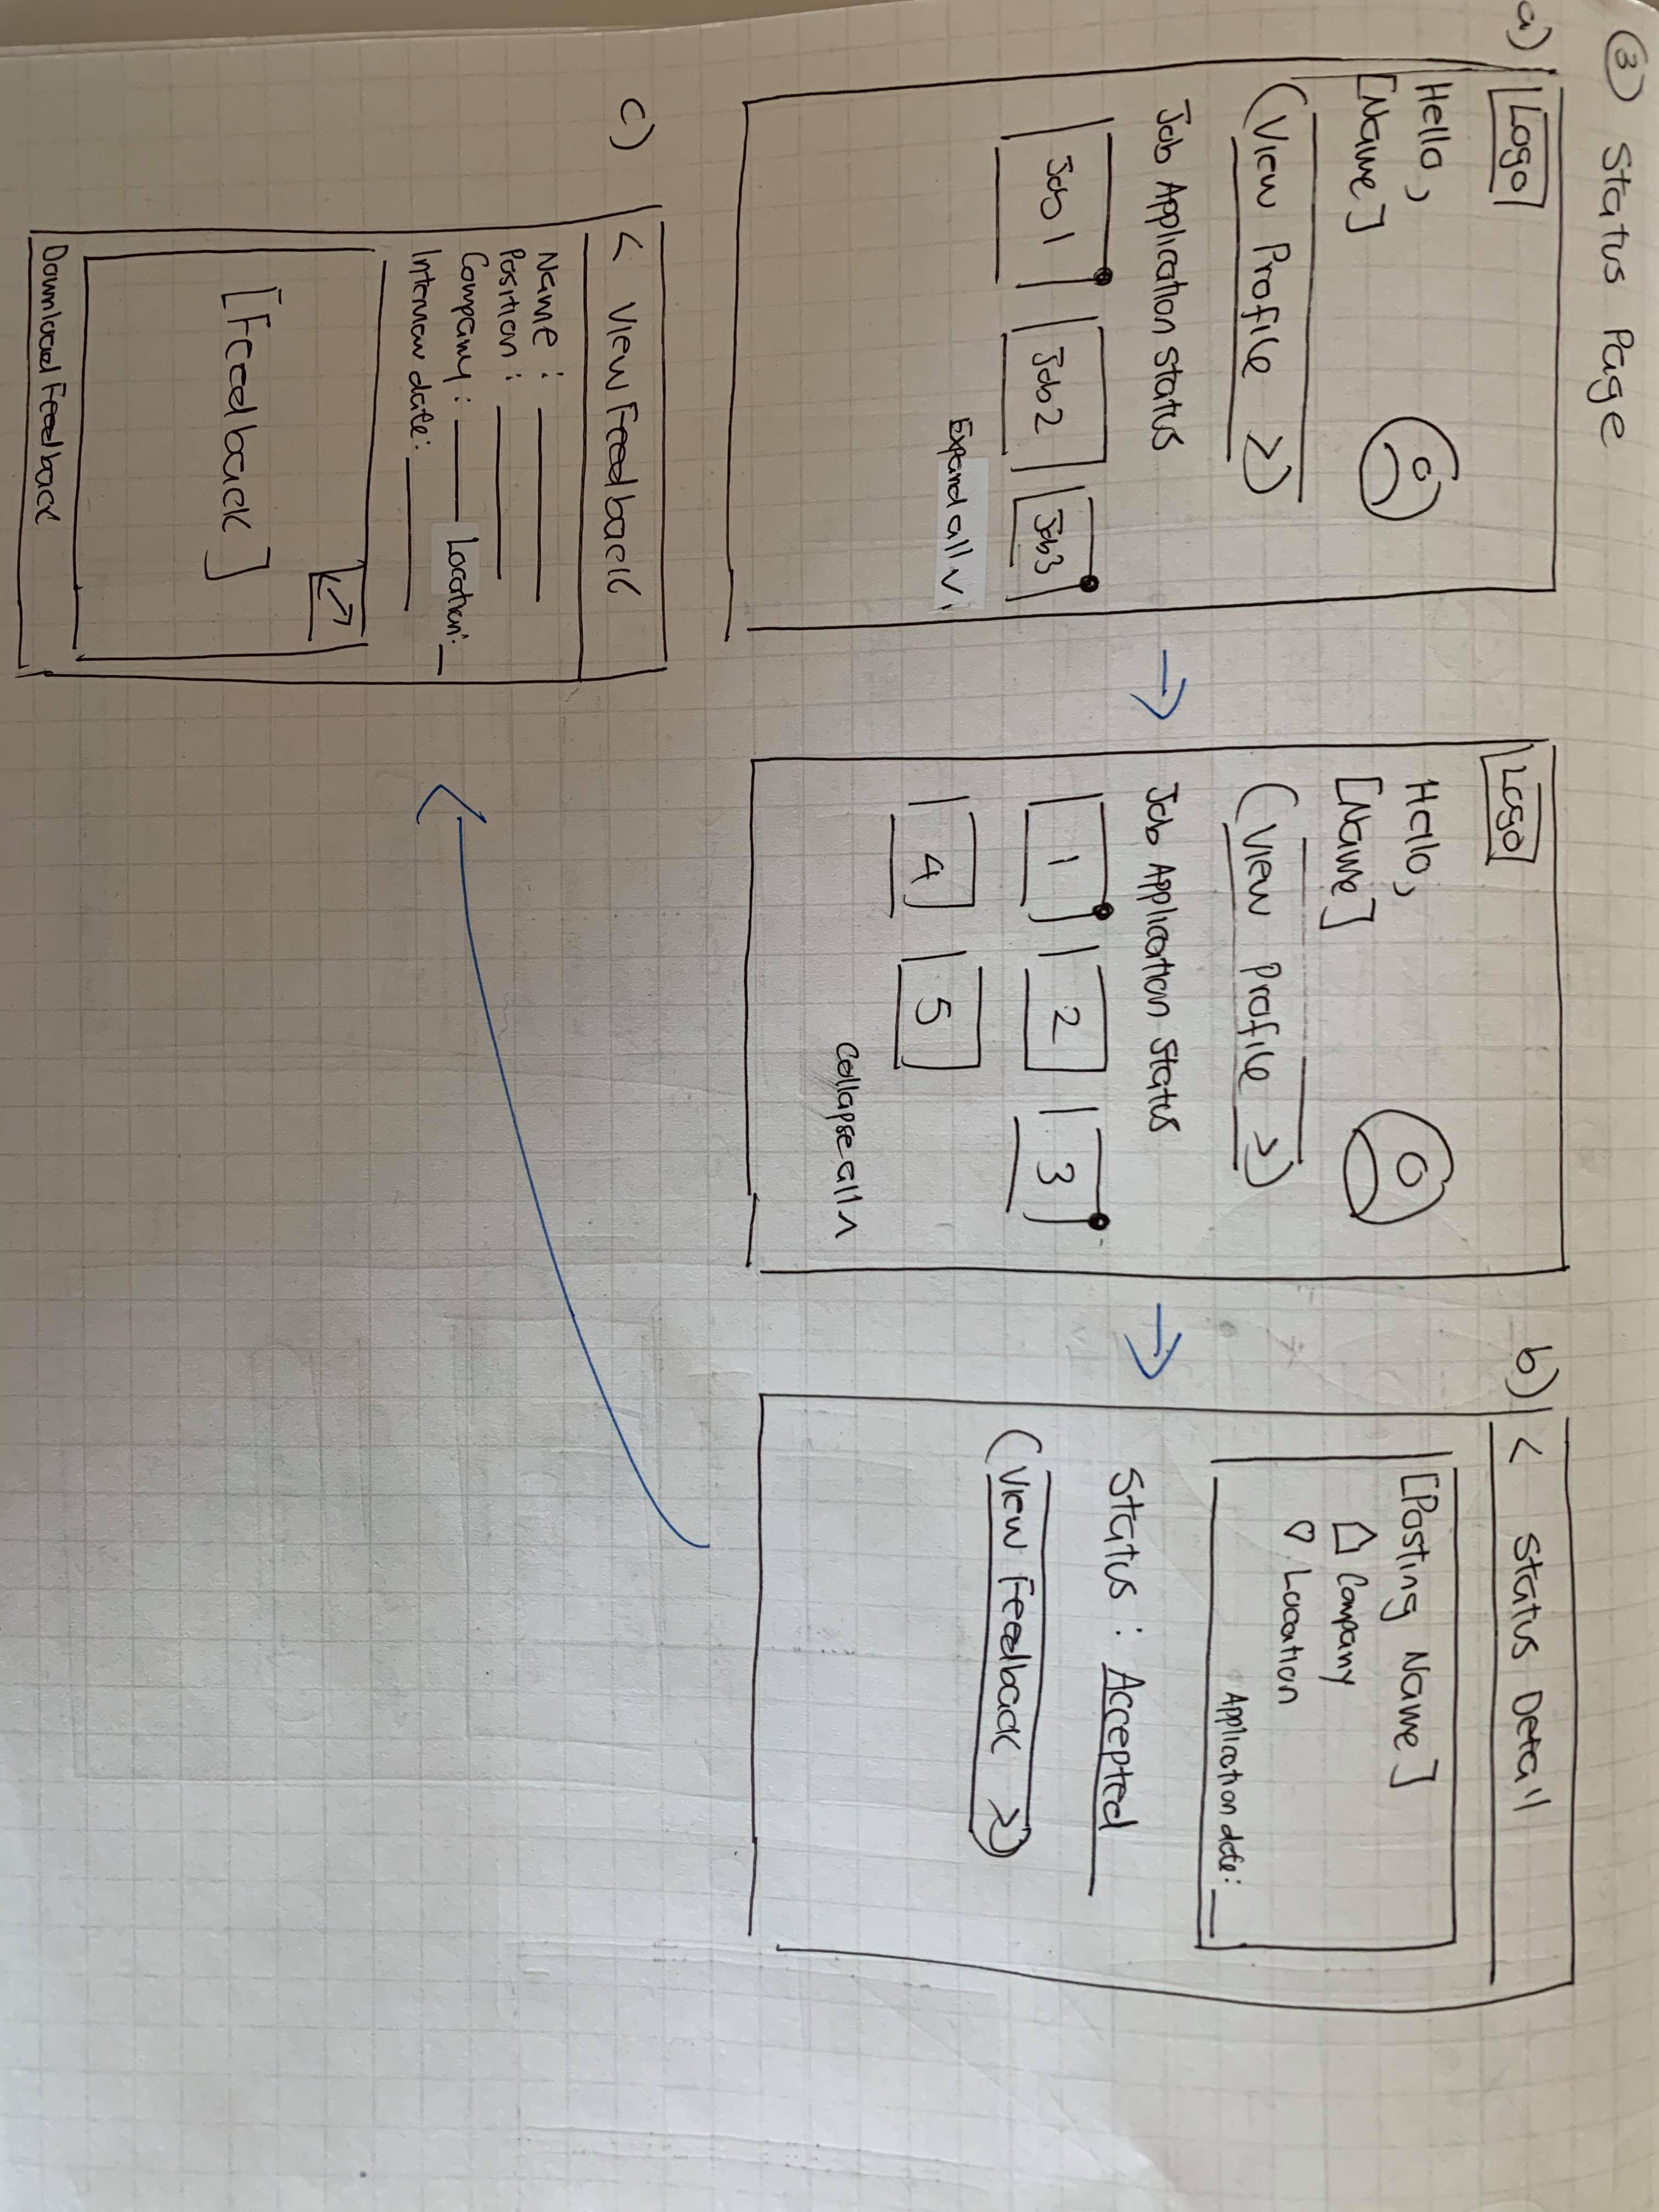 ③ Status Page
a)
Logo
Hello,
[Name]
(View Profile >)
Job Application Status
Job 1
Job 2
Job 3
Expand all ∨
Logo
Hello,
[Name]
(View Profile >)
Job Application Status
1
2
3
4
5
Collapse all ∧
b)
< Status Detail
[Posting Name]
Company
Location
Application date: _
Status : Accepted
(View Feedback >)
c)
< View Feedback
Name : ____
Position : ____
Company : ____ Location: _
Interview date: ____
[Feedback]
Download Feedback